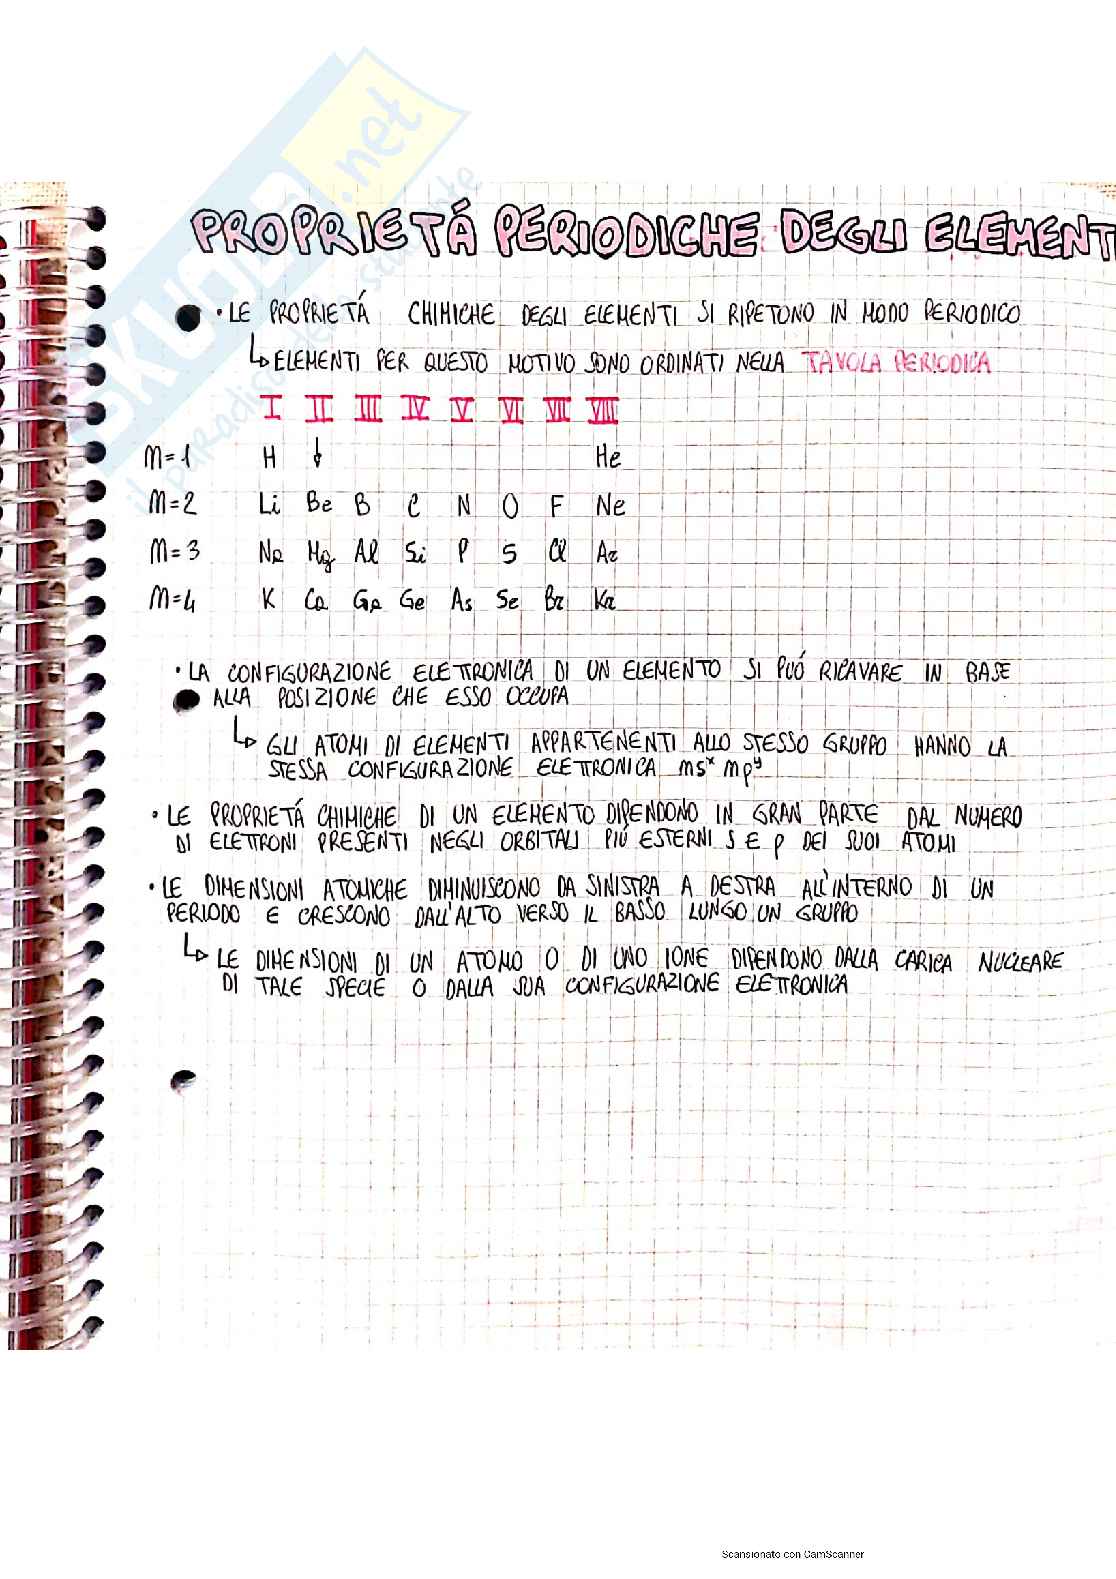 SKUOLA.net
il paradiso dello studente
PROPRIETÁ PERIODICHE DEGLI ELEMENT
• LE PROPRIETÁ CHIMICHE DEGLI ELEMENTI SI RIPETONO IN MODO PERIODICO
↳ ELEMENTI PER QUESTO MOTIVO SONO ORDINATI NELLA TAVOLA PERIODICA
I II III IV V VI VII VIII
n=1 H ↓ He
n=2 Li Be B C N O F Ne
n=3 Na Mg Al Si P S Cl Ar
n=4 K Ca Ga Ge As Se Br Kr
• LA CONFIGURAZIONE ELETTRONICA DI UN ELEMENTO SI PUÓ RICAVARE IN BASE
ALLA POSIZIONE CHE ESSO OCCUPA
↳ GLI ATOMI DI ELEMENTI APPARTENENTI ALLO STESSO GRUPPO HANNO LA
STESSA CONFIGURAZIONE ELETTRONICA nsˣ npʸ
• LE PROPRIETÁ CHIMICHE DI UN ELEMENTO DIPENDONO IN GRAN PARTE DAL NUMERO
DI ELETTRONI PRESENTI NEGLI ORBITALI PIÚ ESTERNI S E p DEI SUOI ATOMI
• LE DIMENSIONI ATOMICHE DIMINUISCONO DA SINISTRA A DESTRA ALL'INTERNO DI UN
PERIODO E CRESCONO DALL'ALTO VERSO IL BASSO LUNGO UN GRUPPO
↳ LE DIMENSIONI DI UN ATOMO O DI UNO IONE DIPENDONO DALLA CARICA NUCLEARE
DI TALE SPECIE O DALLA SUA CONFIGURAZIONE ELETTRONICA
Scansionato con CamScanner